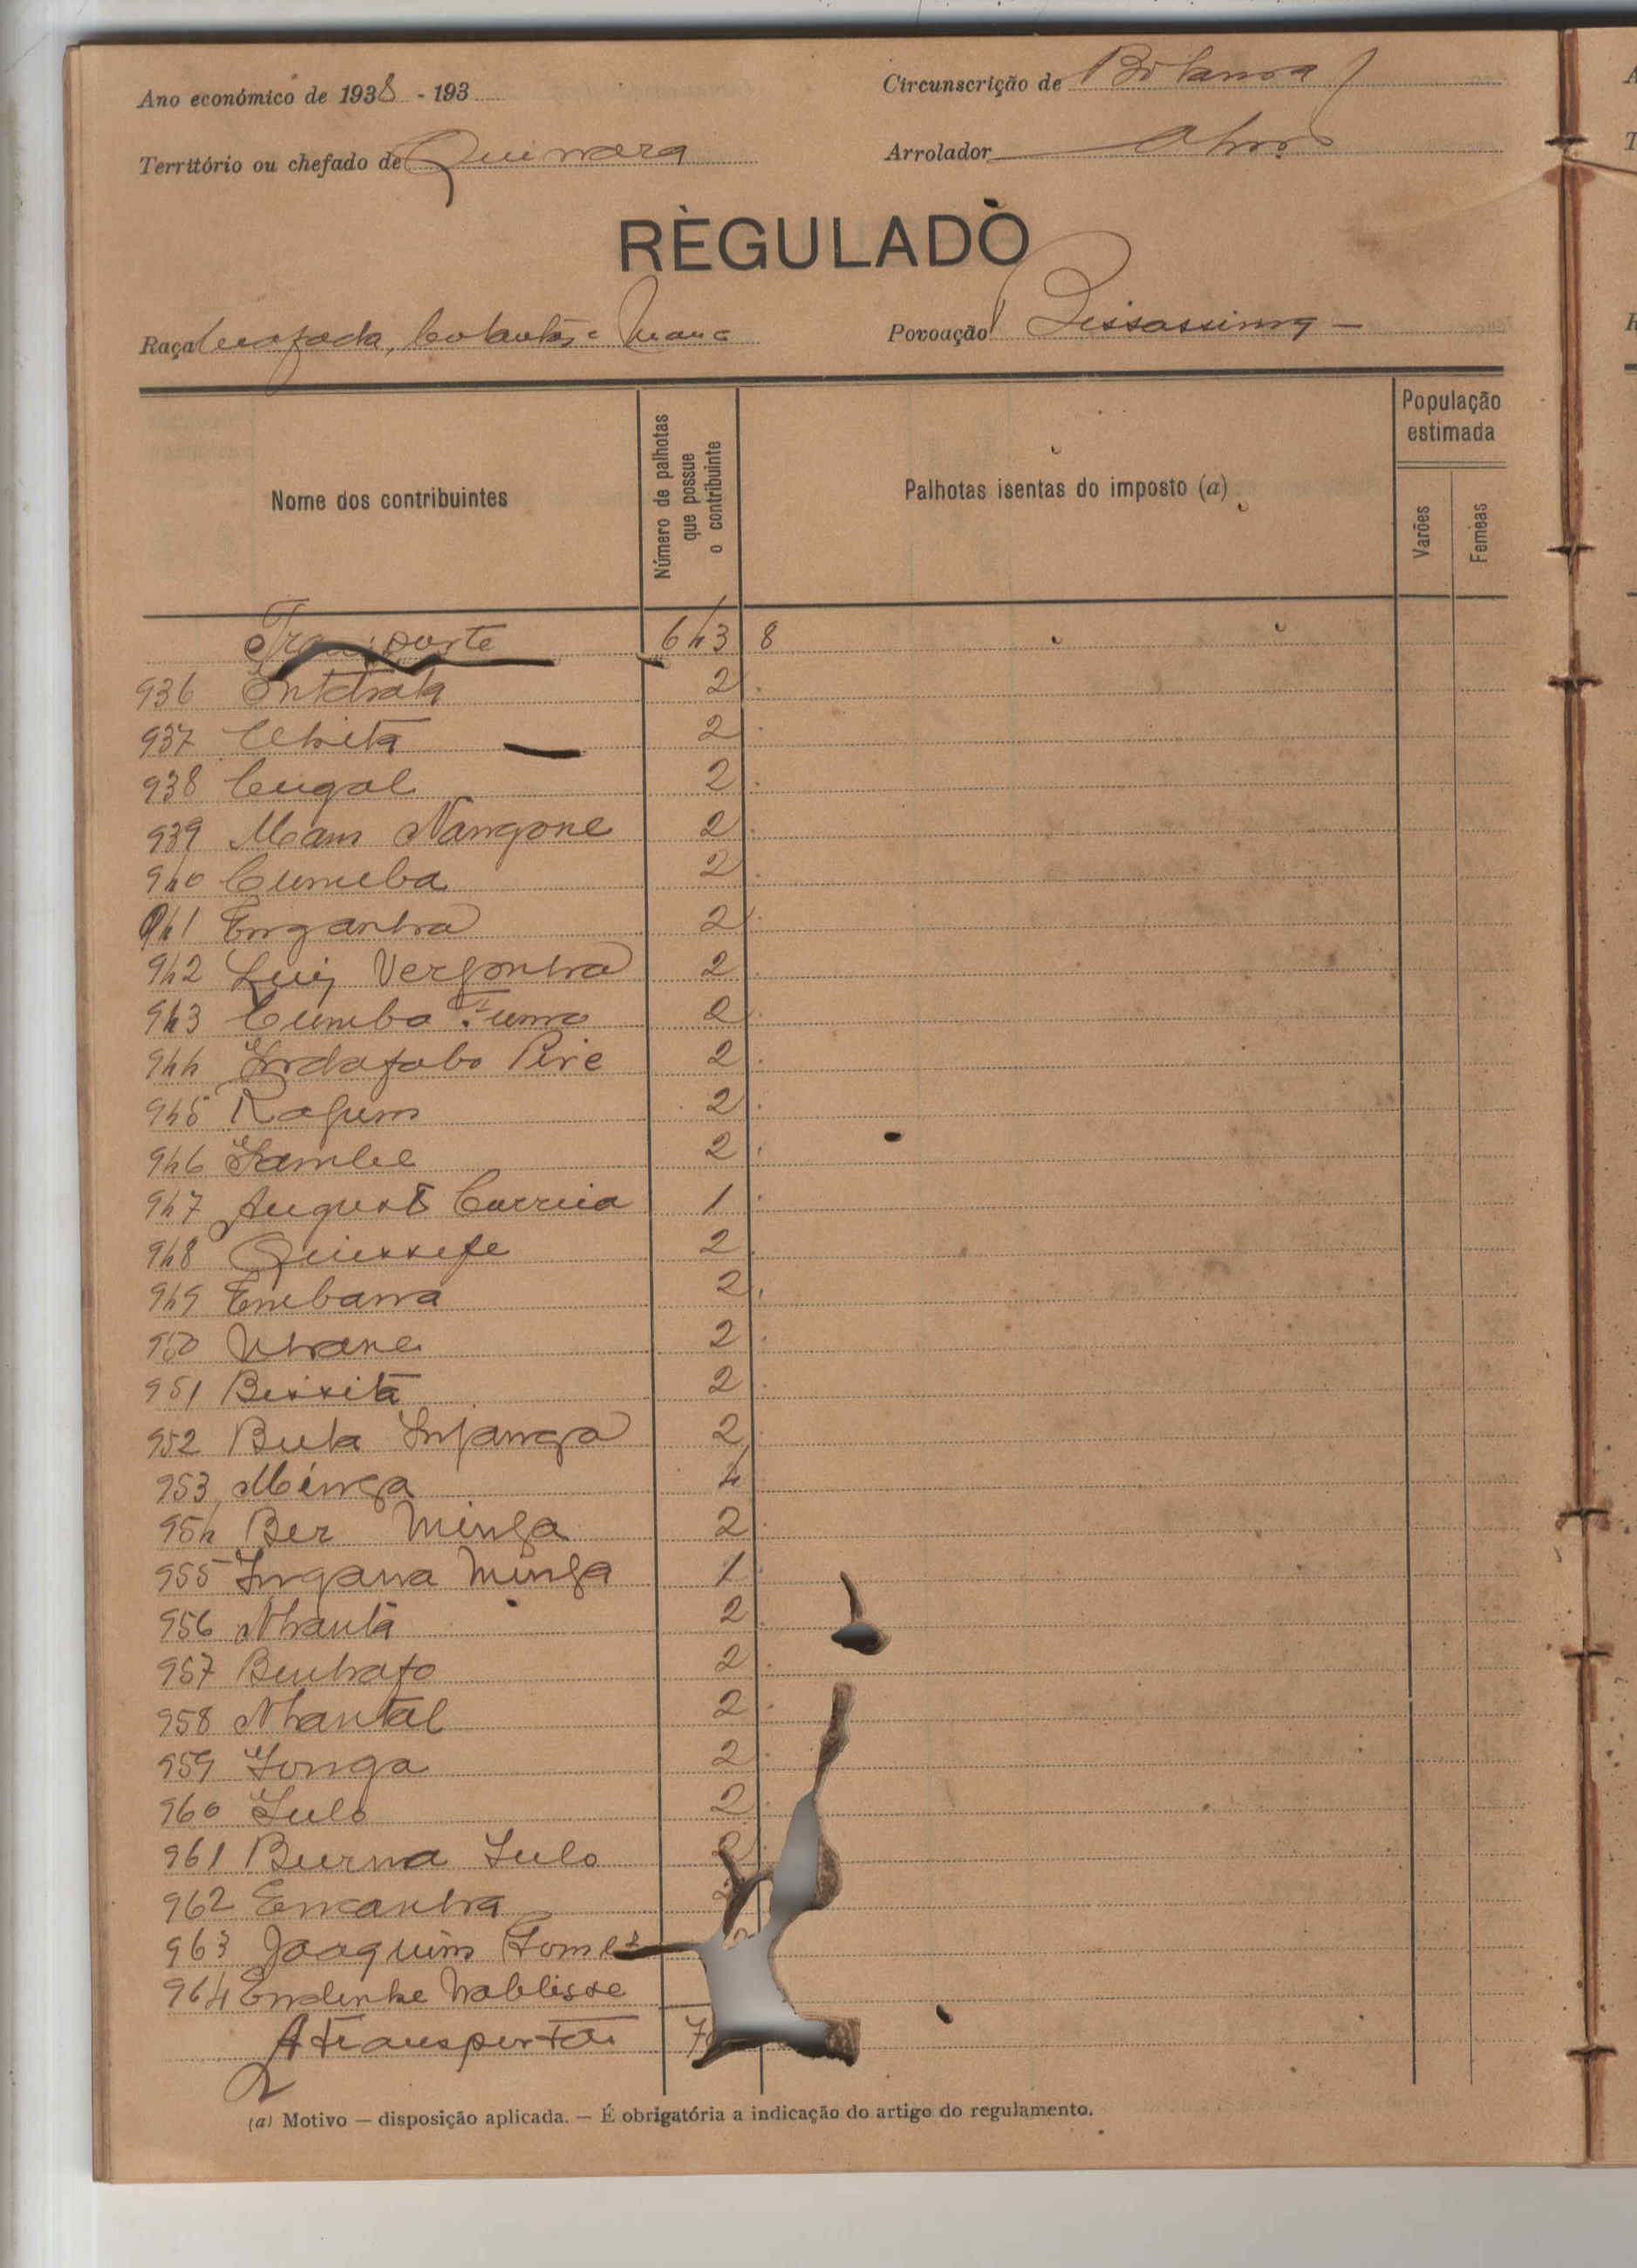 Ano económico de 1938 - 193
Circunscrição de Bolama
Território ou chefado de Quinara
Arrolador
REGULADO
Raça
Povoação
Nome dos contribuintes
Número de palhotas que possue o contribuinte
Palhotas isentas do imposto (a)
População estimada
Varões
Femeas
Transporte 643 8
936 2
937 2
938 Cugal 2
939 Mam Nangone 2
940 Cumeba 2
941 Enganha 2
942 Luiz Vergonha 2
943 Cumba 2
944 Indafabo Pire 2
945 2
946 2
947 Augusto Correia 1
948 Quissefe 2
949 Embana 2
950 2
951 Bissitã 2
952 Buta Infanga 2
953 Minga 4
954 Ber Minga 2
955 Ingana Minga 1
956 Nhantã 2
957 Benhafo 2
958 Nhantal 2
959 Longa 2
960 2
961 Burna
962 Encanha
963 Joaquim Gomes
964
A transportar 7
(a) Motivo — disposição aplicada. — É obrigatória a indicação do artigo do regulamento.